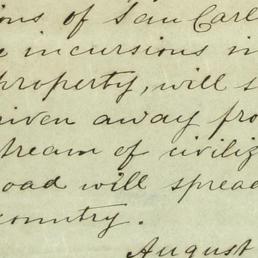 ions of San Carl
e incursions in
property, will s
riven away fro
stream of civiliz
oad will spread
country.
August